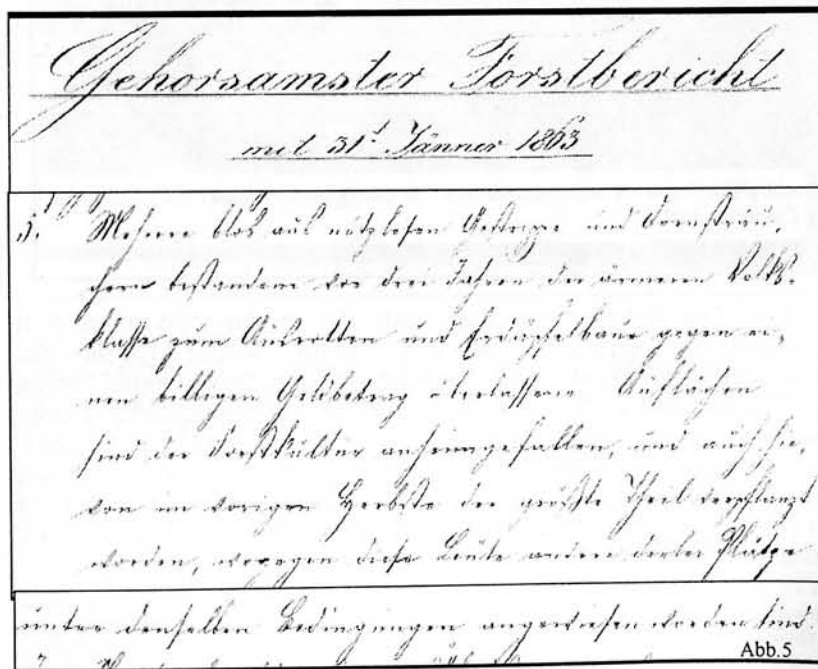 Gehorsamster Forstbericht
mit 31t Jänner 1863
5. Mehrere blos aus nutzlosen Gestrippe und Dornsträu-
chern bestandene vor drei Jahren der ärmeren Volks-
klasse zum Ausrotten und Erdäpfelbaue gegen ei-
nen billigen Geldbetrag überlassene Auflächen
sind der Forstkultur anheimgefallen, und auch hie-
von im vorigen Herbste der größte Theil verpflanzt
worden, wogegen diese Leute andere derlei Plätze
unter denselben Bedingungen angewiesen worden sind.
Abb.5